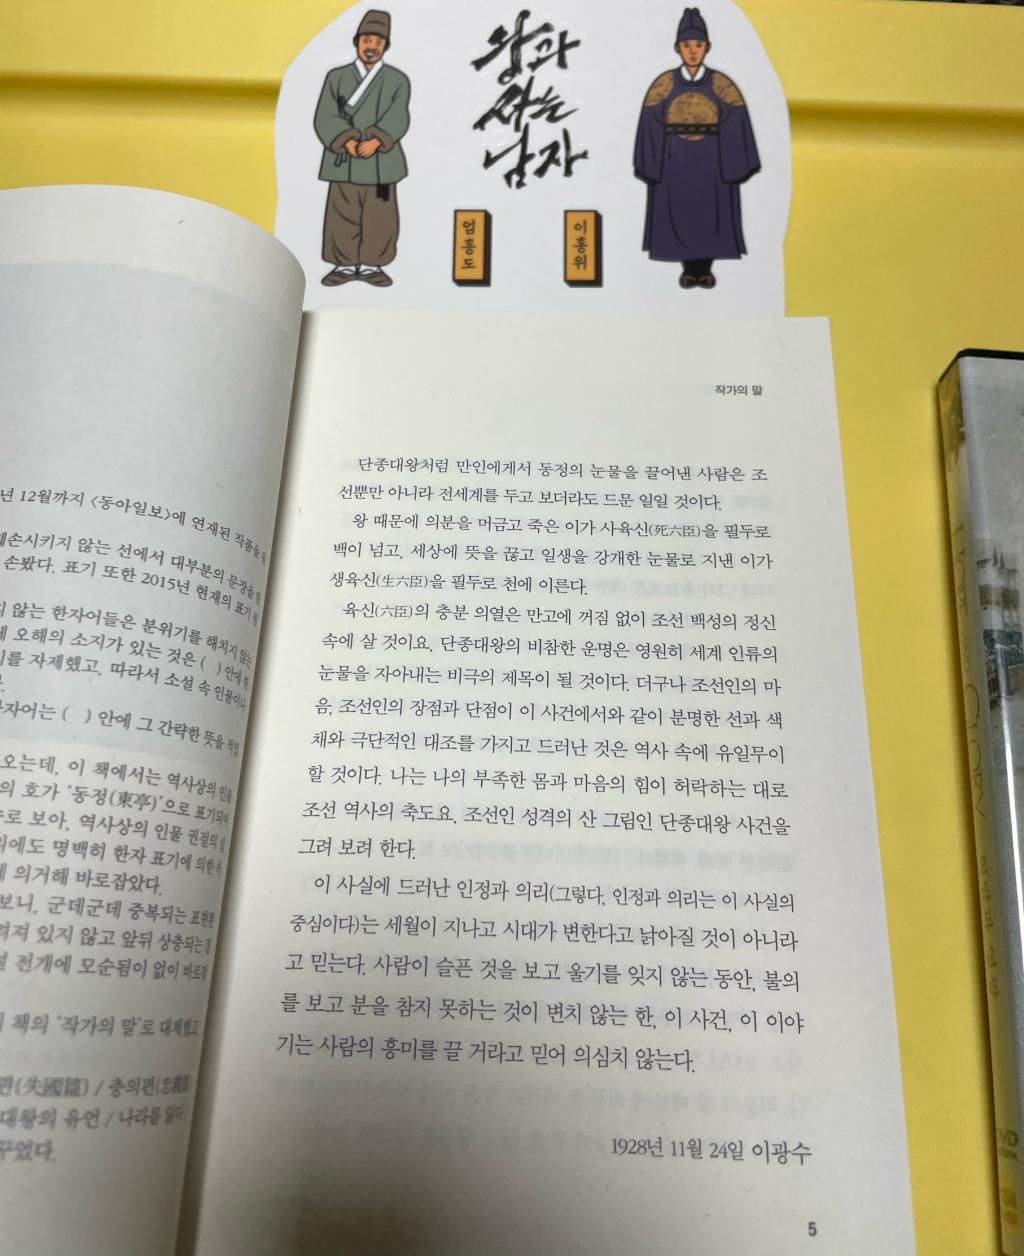 왕과
사는
남자
엄흥도
이홍위
년 12월까지 〈동아일보〉에 연재된 작품을
손시키지 않는 선에서 대부분의 문장을
손봤다. 표기 또한 2015년 현재의 표기
않는 한자어들은 분위기를 해치지 않는
오해의 소지가 있는 것은 ( ) 안에 한
를 자제했고, 따라서 소설 속 인물이나
자어는 ( ) 안에 그 간략한 뜻을 적었
오는데, 이 책에서는 역사상의 인물
의 호가 '동정(東亭)'으로 표기되어
로 보아, 역사상의 인물 권절의
외에도 명백히 한자 표기에 의한
의거해 바로잡았다.
보니, 군데군데 중복되는 표현
져 있지 않고 앞뒤 상충되는
전개에 모순됨이 없이 바로잡
책의 '작가의 말'로 대체했고
편(失國篇) / 충의편(忠義篇
대왕의 유언 / 나라를 잃다 /
꾸었다.
작가의 말
단종대왕처럼 만인에게서 동정의 눈물을 끌어낸 사람은 조
선뿐만 아니라 전세계를 두고 보더라도 드문 일일 것이다.
왕 때문에 의분을 머금고 죽은 이가 사육신(死六臣)을 필두로
백이 넘고, 세상에 뜻을 끊고 일생을 강개한 눈물로 지낸 이가
생육신(生六臣)을 필두로 천에 이른다.
육신(六臣)의 충분 의열은 만고에 꺼짐 없이 조선 백성의 정신
속에 살 것이요, 단종대왕의 비참한 운명은 영원히 세계 인류의
눈물을 자아내는 비극의 제목이 될 것이다. 더구나 조선인의 마
음, 조선인의 장점과 단점이 이 사건에서와 같이 분명한 선과 색
채와 극단적인 대조를 가지고 드러난 것은 역사 속에 유일무이
할 것이다. 나는 나의 부족한 몸과 마음의 힘이 허락하는 대로
조선 역사의 축도요, 조선인 성격의 산 그림인 단종대왕 사건을
그려 보려 한다.
이 사실에 드러난 인정과 의리(그렇다, 인정과 의리는 이 사실의
중심이다)는 세월이 지나고 시대가 변한다고 낡아질 것이 아니라
고 믿는다. 사람이 슬픈 것을 보고 울기를 잊지 않는 동안, 불의
를 보고 분을 참지 못하는 것이 변치 않는 한, 이 사건, 이 이야
기는 사람의 흥미를 끌 거라고 믿어 의심치 않는다.
1928년 11월 24일 이광수
5
HOPE and GLORY
희망과 영광
DVD